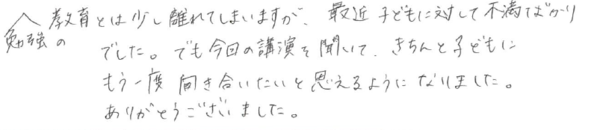 勉強の教育とは少し離れてしまいますが、最近子どもに対して不満ばかり
でした。でも今回の講演を聞いて、きちんと子どもに
もう一度向き合いたいと思えるようになりました。
ありがとうございました。